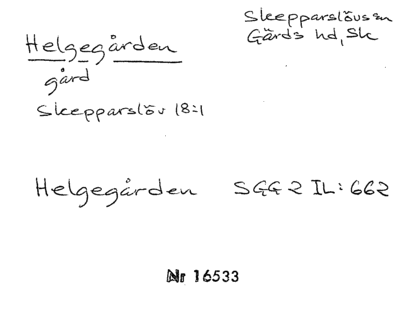 Helgegården
gård
Skepparslöv 18:1
Skepparslövs sn
Gärds hd, Sk
Helgegården SGG 2 IL: 662
Nr 16533